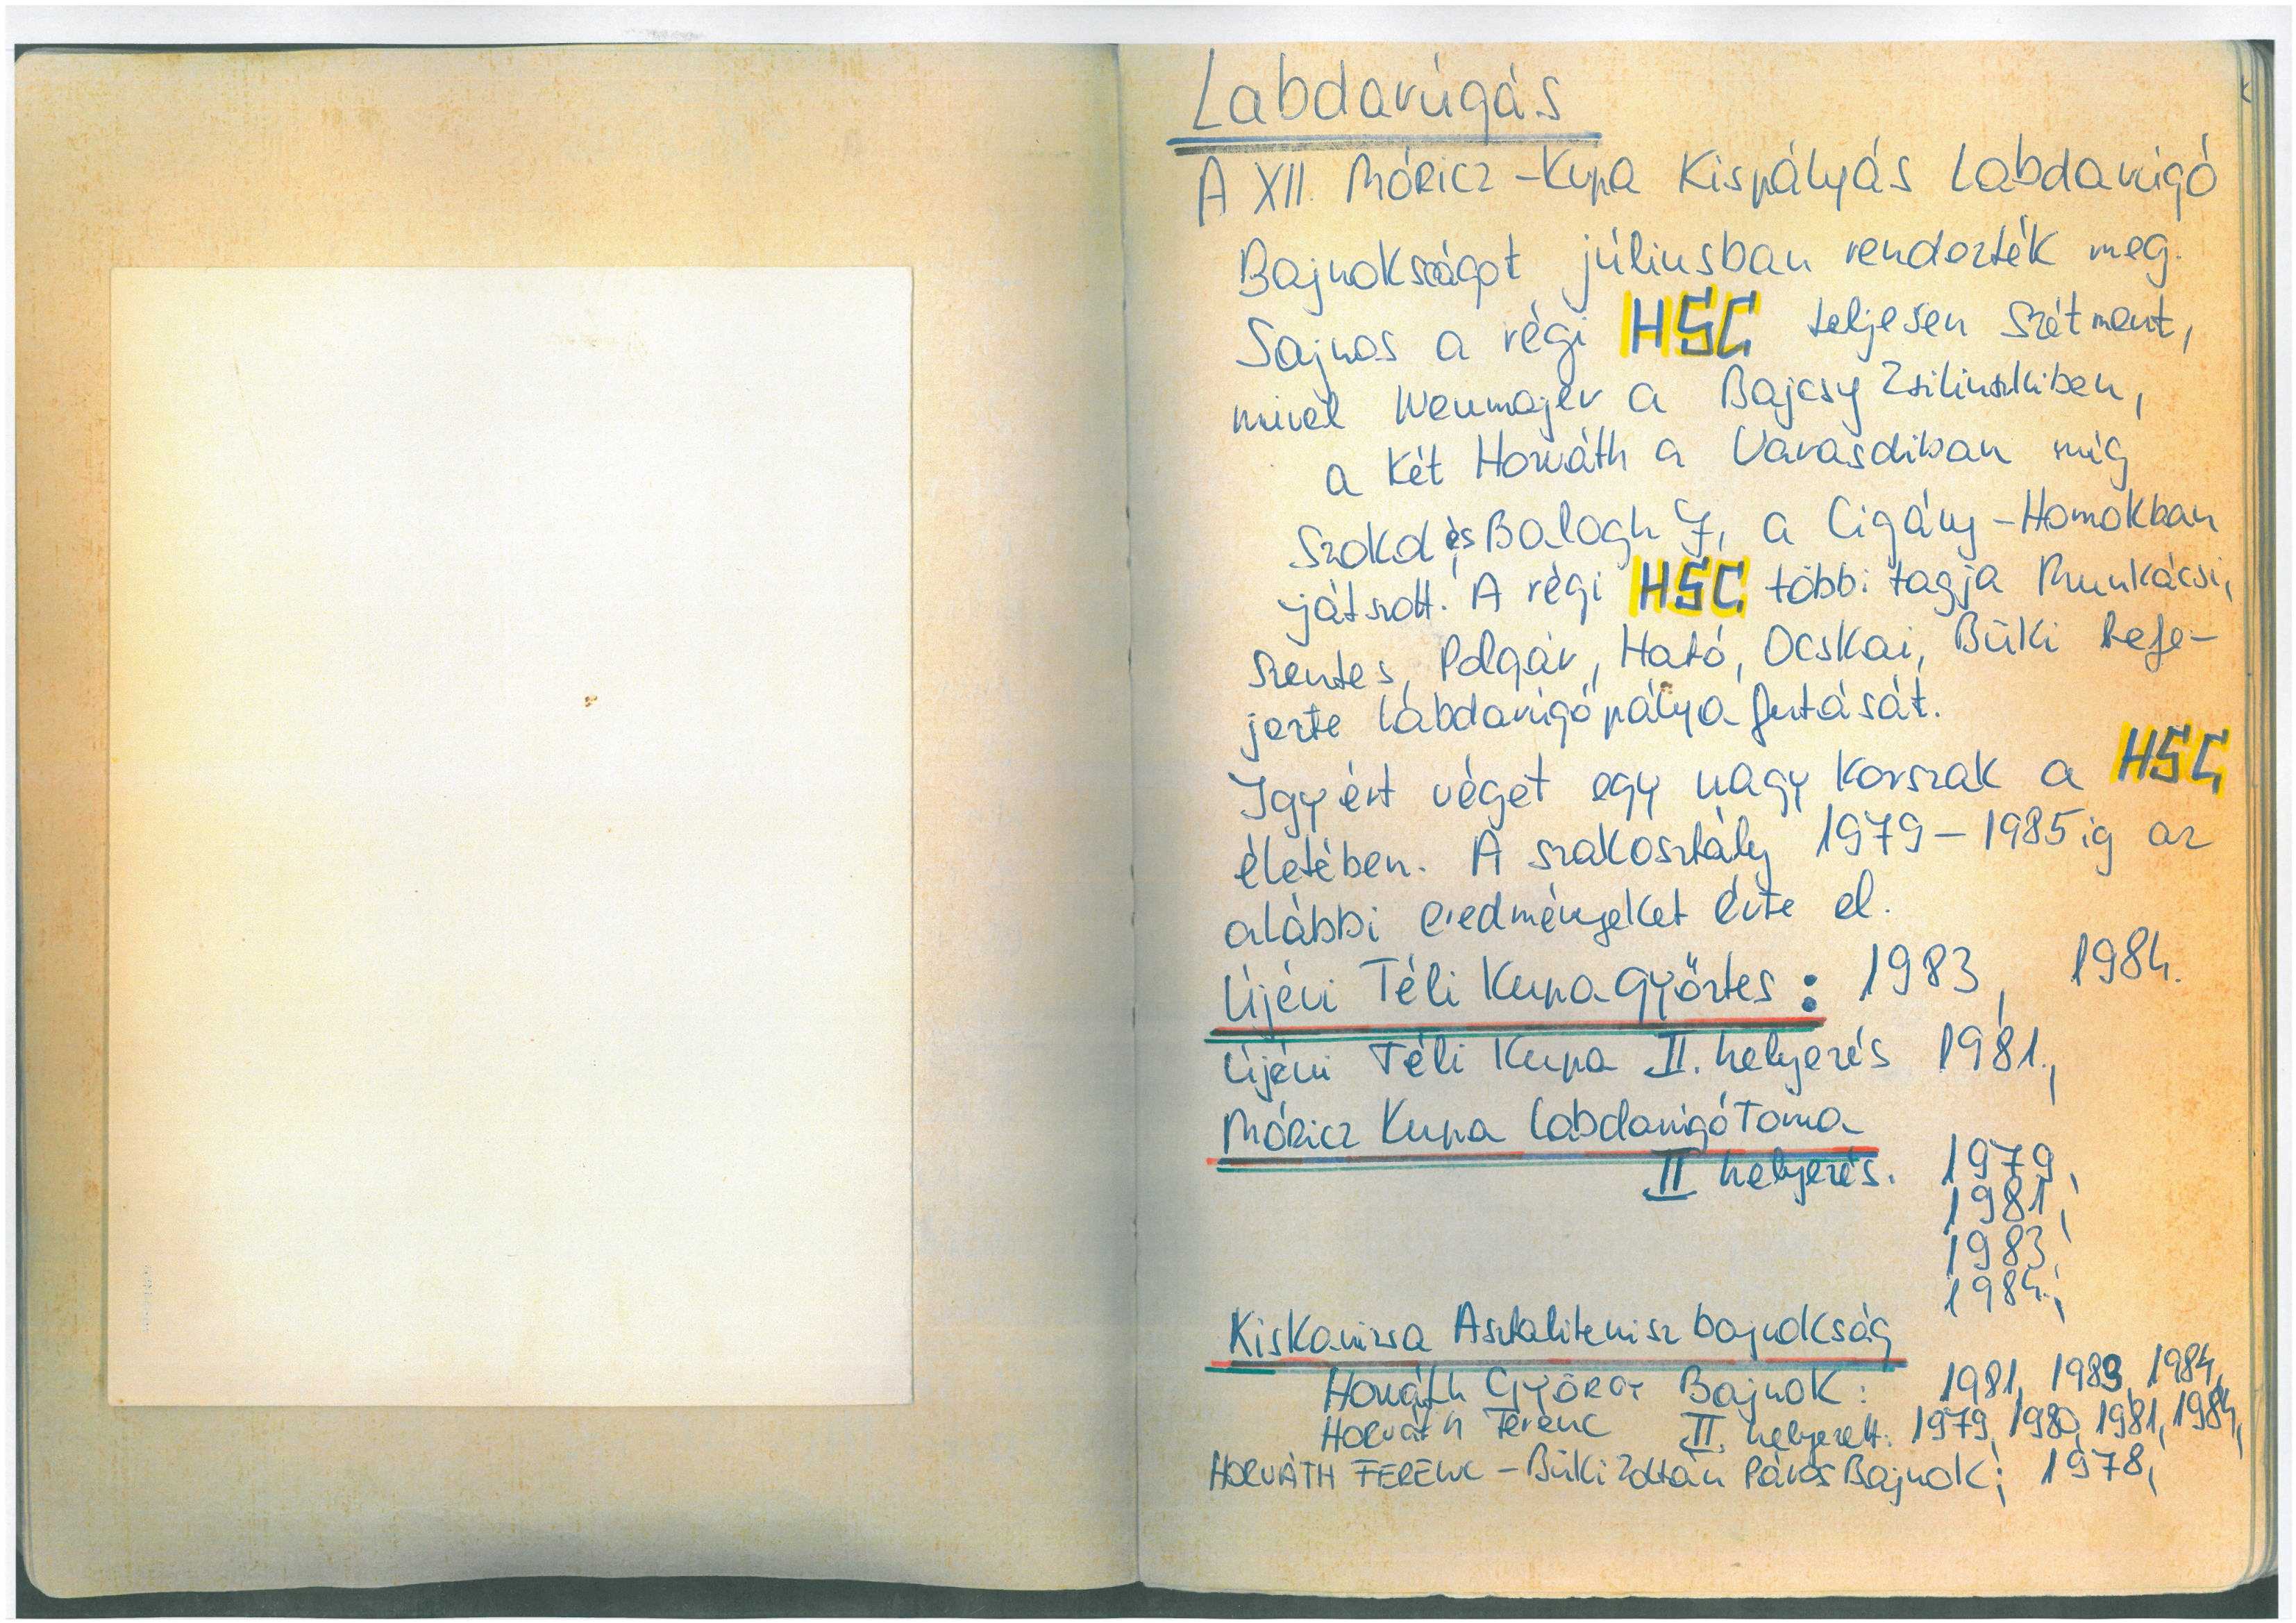 Labdarúgás
A XII. Móricz-Kupa Kispályás Labdarúgó
Bajnokságot júliusban rendezték meg.
Sajnos a régi HSC teljesen szétment,
mivel Weumajer a Bajcsy Zsilinszkiben,
a két Horváth a Varasdiban míg
Szokol és Balogh J, a Cigány-Homokban
játszott. A régi HSC többi tagja Munkácsi,
Szentes, Polgár, Ható, Ocskai, Büki befe-
jezte labdarúgó pálya futását.
Igy ért véget egy nagy korszak a HSC
életében. A szakosztály 1979-1985 ig az
alábbi eredményeket érte el.
Újévi Téli Kupa Győztes: 1983, 1984.
Újévi Téli Kupa II. helyezés 1981.,
Móricz Kupa Labdarúgó Torna
II helyezés. 1979,
1981,
1983,
1984.,
Kiskanizsa Asztalitenisz bajnokság
Horváth György Bajnok: 1981, 1983, 1984,
Horváth Ferenc II. helyezett: 1979, 1980, 1981, 1984,
HORVÁTH FERENC - Büki Zoltán Páros Bajnok; 1978,